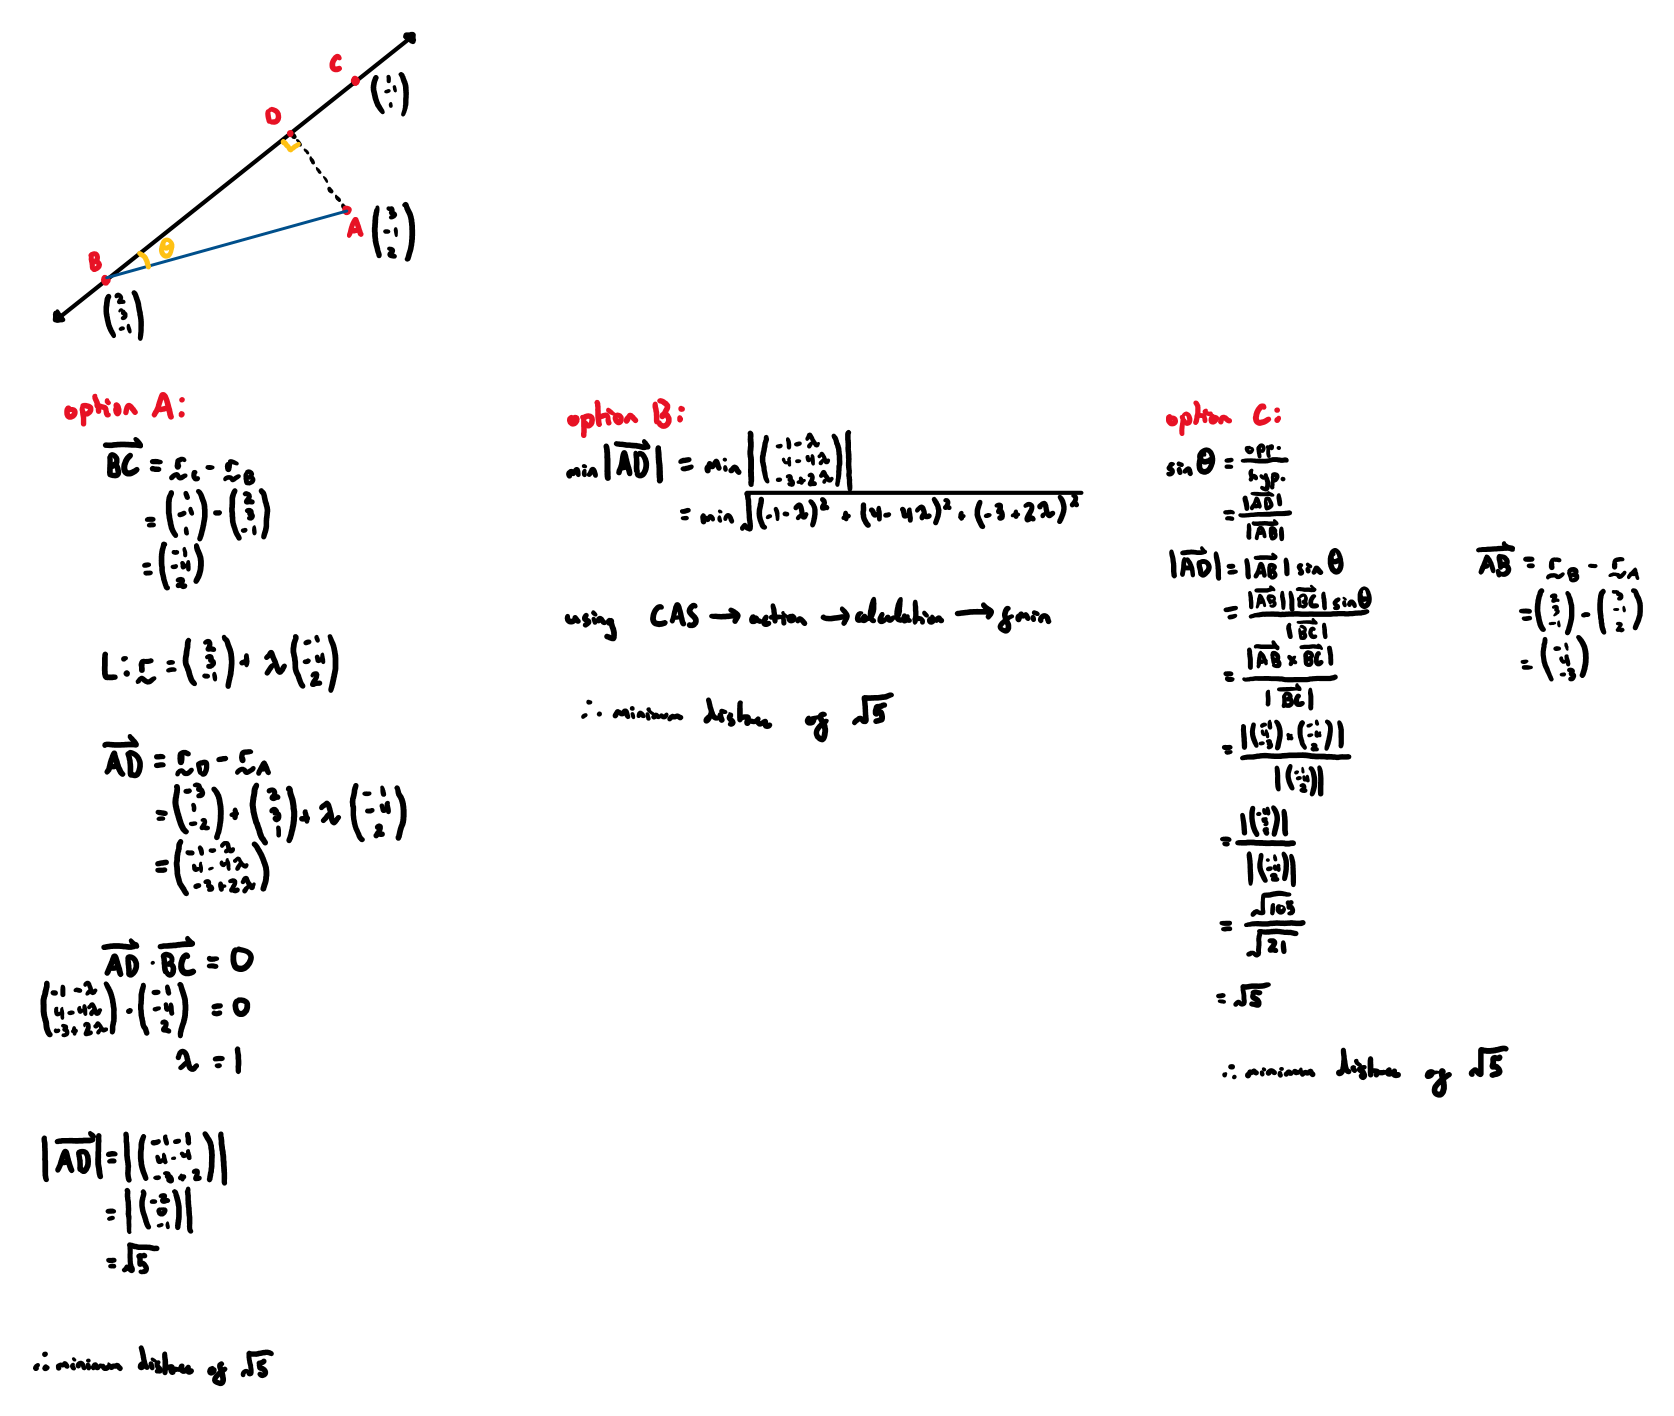 C
(1 -1 1)
D
A (3 -1 2)
θ
B
(2 3 -1)
option A:
BC = r_C - r_B
= (1 -1 1) - (2 3 -1)
= (-1 -4 2)
L: r = (2 3 -1) + λ(-1 -4 2)
AD = r_D - r_A
= (-3 1 -2) + (2 3 1) + λ(-1 -4 2)
= (-1-λ 4-4λ -3+2λ)
AD · BC = 0
(-1-λ 4-4λ -3+2λ) · (-1 -4 2) = 0
λ = 1
|AD| = |(-1-1 4-4 -3+2)|
= |(-2 0 -1)|
= √5
∴ minimum distance of √5
option B:
min|AD| = min|(-1-λ 4-4λ -3+2λ)|
= min√((-1-λ)² + (4-4λ)² + (-3+2λ)²)
using CAS → action → calculation → fmin
∴ minimum distance of √5
option C:
sin θ = opp. / hyp.
= |AD| / |AB|
|AD| = |AB| sin θ
= |AB||BC| sin θ / |BC|
= |AB × BC| / |BC|
= |(-1 4 -3) × (-1 -4 2)| / |(-1 -4 2)|
= / |(-1 -4 2)|
= √105 / √21
= √5
∴ minimum distance of √5
AB = r_B - r_A
= (2 3 -1) - (3 -1 2)
= (-1 4 -3)